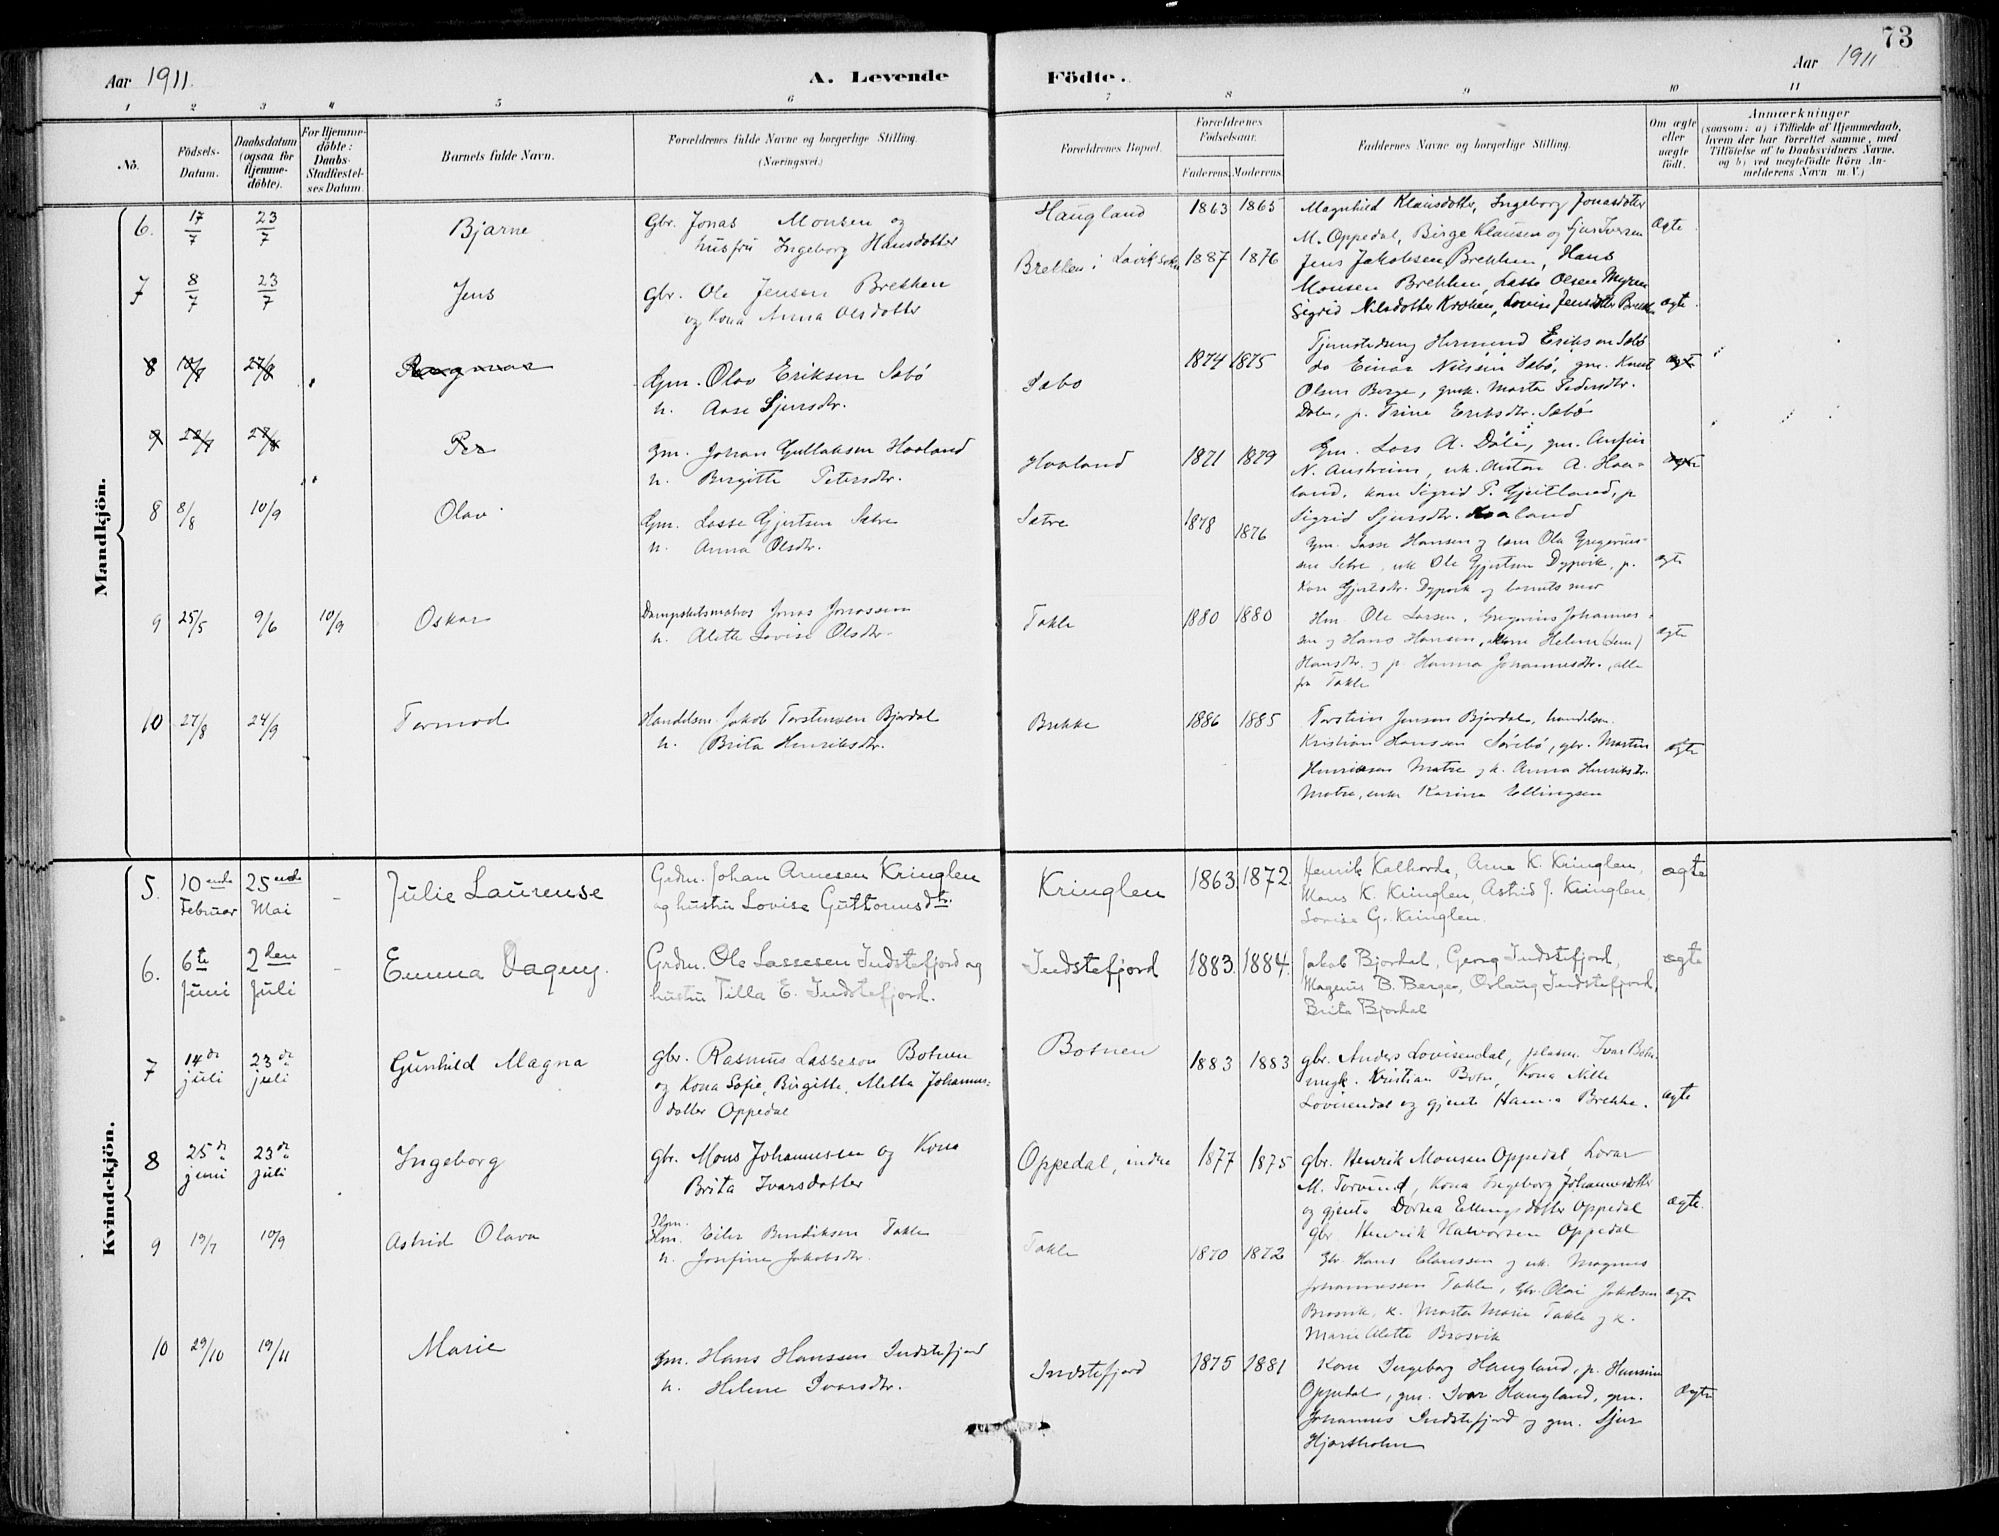 73
Aar 1911.
A. Levende
Födte.
Aar 1911
1 2 3 4 5 6 7 8 9 10 11
No.
Födsels-
Datum.
Daabsdatum
(ogsaa for
Hjemme-
döbte).
For Hjemme-
döbte:
Daabs-
Stadfæstel-
ses Datum.
Barnets fulde Navn.
Forældrenes fulde Navne og borgerlige Stilling.
(Næringsvei.)
Forældrenes Bopæl.
Forældrenes
Fødselsaar.
Faderens. Moderens.
Faddernes Navne og borgerlige Stilling.
Om ægte
eller
uægte
født.
Anmærkninger
(saasom: a) i Tilfælde af Hjemmedaab,
hvem der har forrettet samme, med
Tilföielse af to Daabsvidners Navne.
og b) ved uægtefödte Börn An-
melderens Navn m. V.)
Mandkjön.
6. 17/7 23/7 Bjarne
Gbr. Jonas Monsen og
husfru Ingeborg Hansdotter
Haugland 1863 1865
Magnhild Klausdotter, Ingeborg Jonasdotter
M. Oppedal, Birge Klausen og Sjur Iversen
Ægte
7 8/7 23/7 Jens
Gbr. Ole Jensen Brekken
og kona Anna Olsdotter
Brekken i Lavik sokn 1887 1876
Jens Jakobsen Brekken, Hans
Monsen Brekken, Lasse Olsen Myren
Sigrid Nilsdotter Kroken, Lovise Jensdotter Brekken
ægte
8 27/8 Ragnar
Gm. Olav Eriksen Sæbö
h. Aase Sjursdtr.
Sæbo 1874 1875
Hermund Eriksen Sæbö
do Einar Nilssen Sæbö, gm. Knut
Olsen Berge, gmk. Marta Pedersdtr.
Dale, p. Trine Eriksdtr. Sæbö
ægte
9 Per
Gm. Johan Gullaksen Haaland
h. Birgitte Petersdtr.
Haaland 1871 1879
Gm. Lars A. Dale, gm. Anfin
N. Austreim, uk. Anton A. Haa-
land, kone Sigrid P. Gjeitland, p
Sigrid Sjursdtr. Haaland
ægte
8 8/8 10/9 Olav
Gm. Lasse Gjertsen Sætre
h. Anna Olsdtr.
Sætre 1878 1876
Gm. Lasse Hansen og Ole Gregorius-
sen Sætre, uk. Ole Gjertsen Dypvik, p.
Kari Gjertsdtr. Dypvik og barnets mor
ægte
9 25/5 9/6 10/9 Oskar
Dampskibsmatros Jonas Jonassen
h. Aletta Lovise Olsdtr.
Takle 1880 1880
Hm. Ole Larsen, Gregorius Johannes-
sen og Hans Hansen, kone Helene
Hansdtr. og p. Hanna Johannesdtr., alle
fra Takle
ægte
10 27/8 24/9 Tormod
Handelsm. Jakob Torstensen Bjordal
h. Brita Henriksdtr.
Brekke 1886 1885
Torstein Jensen Bjordal, handelsm.
Kristian Hanssen Sörebö, gbr. Martin
Henriksen Matre og k. Anna Henriksdtr.
Matre, enke Karina Ellingsen
ægte
Kvindekjön.
5. 10ende Februar 25ende Mai – Julie Laurense
Grdm. Johan Arnesen Kringlen
og hustru Lovise Guttormsdtr.
Kringlen 1863. 1872.
Henrik Kalhovde, Arne K. Kringlen,
Mons K. Kringlen, Astrid J. Kringlen,
Lovise G. Kringlen.
ægte
6. 6te Juni 2den Juli – Emma Dagny.
Grdm. Ole Lassesen Indstefjord og
hustru Tilla E. Indstefjord.
Indstefjord 1883. 1884.
Jakob Bjordal, Georg Indstefjord,
Magnus B. Berge, Oslaug Indstefjord,
Brita Bjordal
ægte
7 14de juli 23de juli Gunhild Magna
gbr. Rasmus Lasseson Botnen
og Kona Sofie, Birgitte, Metta Johannes-
dotter Oppedal
Botnen 1883 1883
gbr. Anders Lovisendal, plassm. Ivar Botn.
ungk. Kristian Botn, Kona Nille
Lovisendal og gjenta Hanna Brekke.
ægte
8 25de juni 23de juli Ingeborg
gbr. Mons Johannesen og Kona
Brita Ivarsdotter
Oppedal, indre 1877 1875
gbr. Henrik Monsen Oppedal, Lovar
M. Torvund, Kona Ingeborg Johannesdotter
og gjenta Dortea Ellingsdotter Oppedal
gbr Henrik Halvorsen Oppedal
ægte.
9 19/7 10/9 Astrid Olava
Hm. Eiler Bendiksen Takle
h. Josefine Jakobsdtr.
Takle 1870 1872
Gbr. Hans Clausen og uk. Magnus
Johannessen Takle, Gbr. Olai Jakobsen
Brosvik, k. Marta Marie Takle og k.
Marie Alette Brosvik
ægte
10 29/10 19/11 Marie
Gm. Hans Hanssen Indstefjord
h. Helene Ivarsdtr.
Indstefjord 1875 1881
Kone Ingeborg Haugland, p. Hansine
Oppedal, gm. Ivar Haugland, gm.
Johannes Indstefjord og gm. Sjur
Hjartholm
Ægte